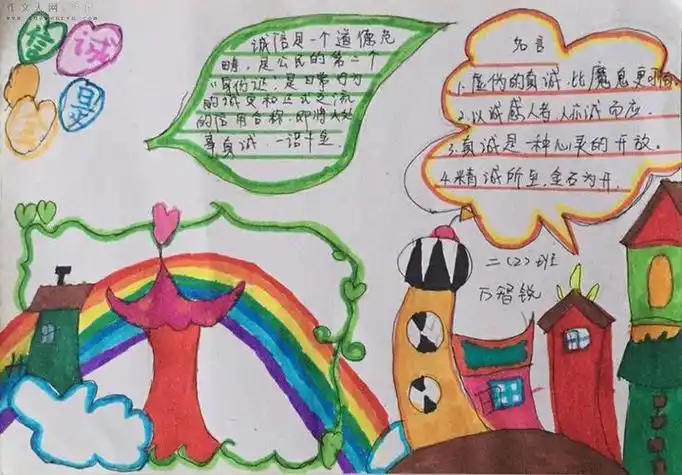 作文人网
诚
信
是
金
诚信是一个道德范
畴,是公民的第二个
“身份证”,是日常行为
的诚实和正式交流
的信用合称。即待人处
事真诚、
名言
1.虚伪的真诚,比魔鬼更可怕。
2.以诚感人者,人亦诚而应。
3.真诚是一种心灵的开放。
4.精诚所至,金石为开。
二(2)班
万智锐